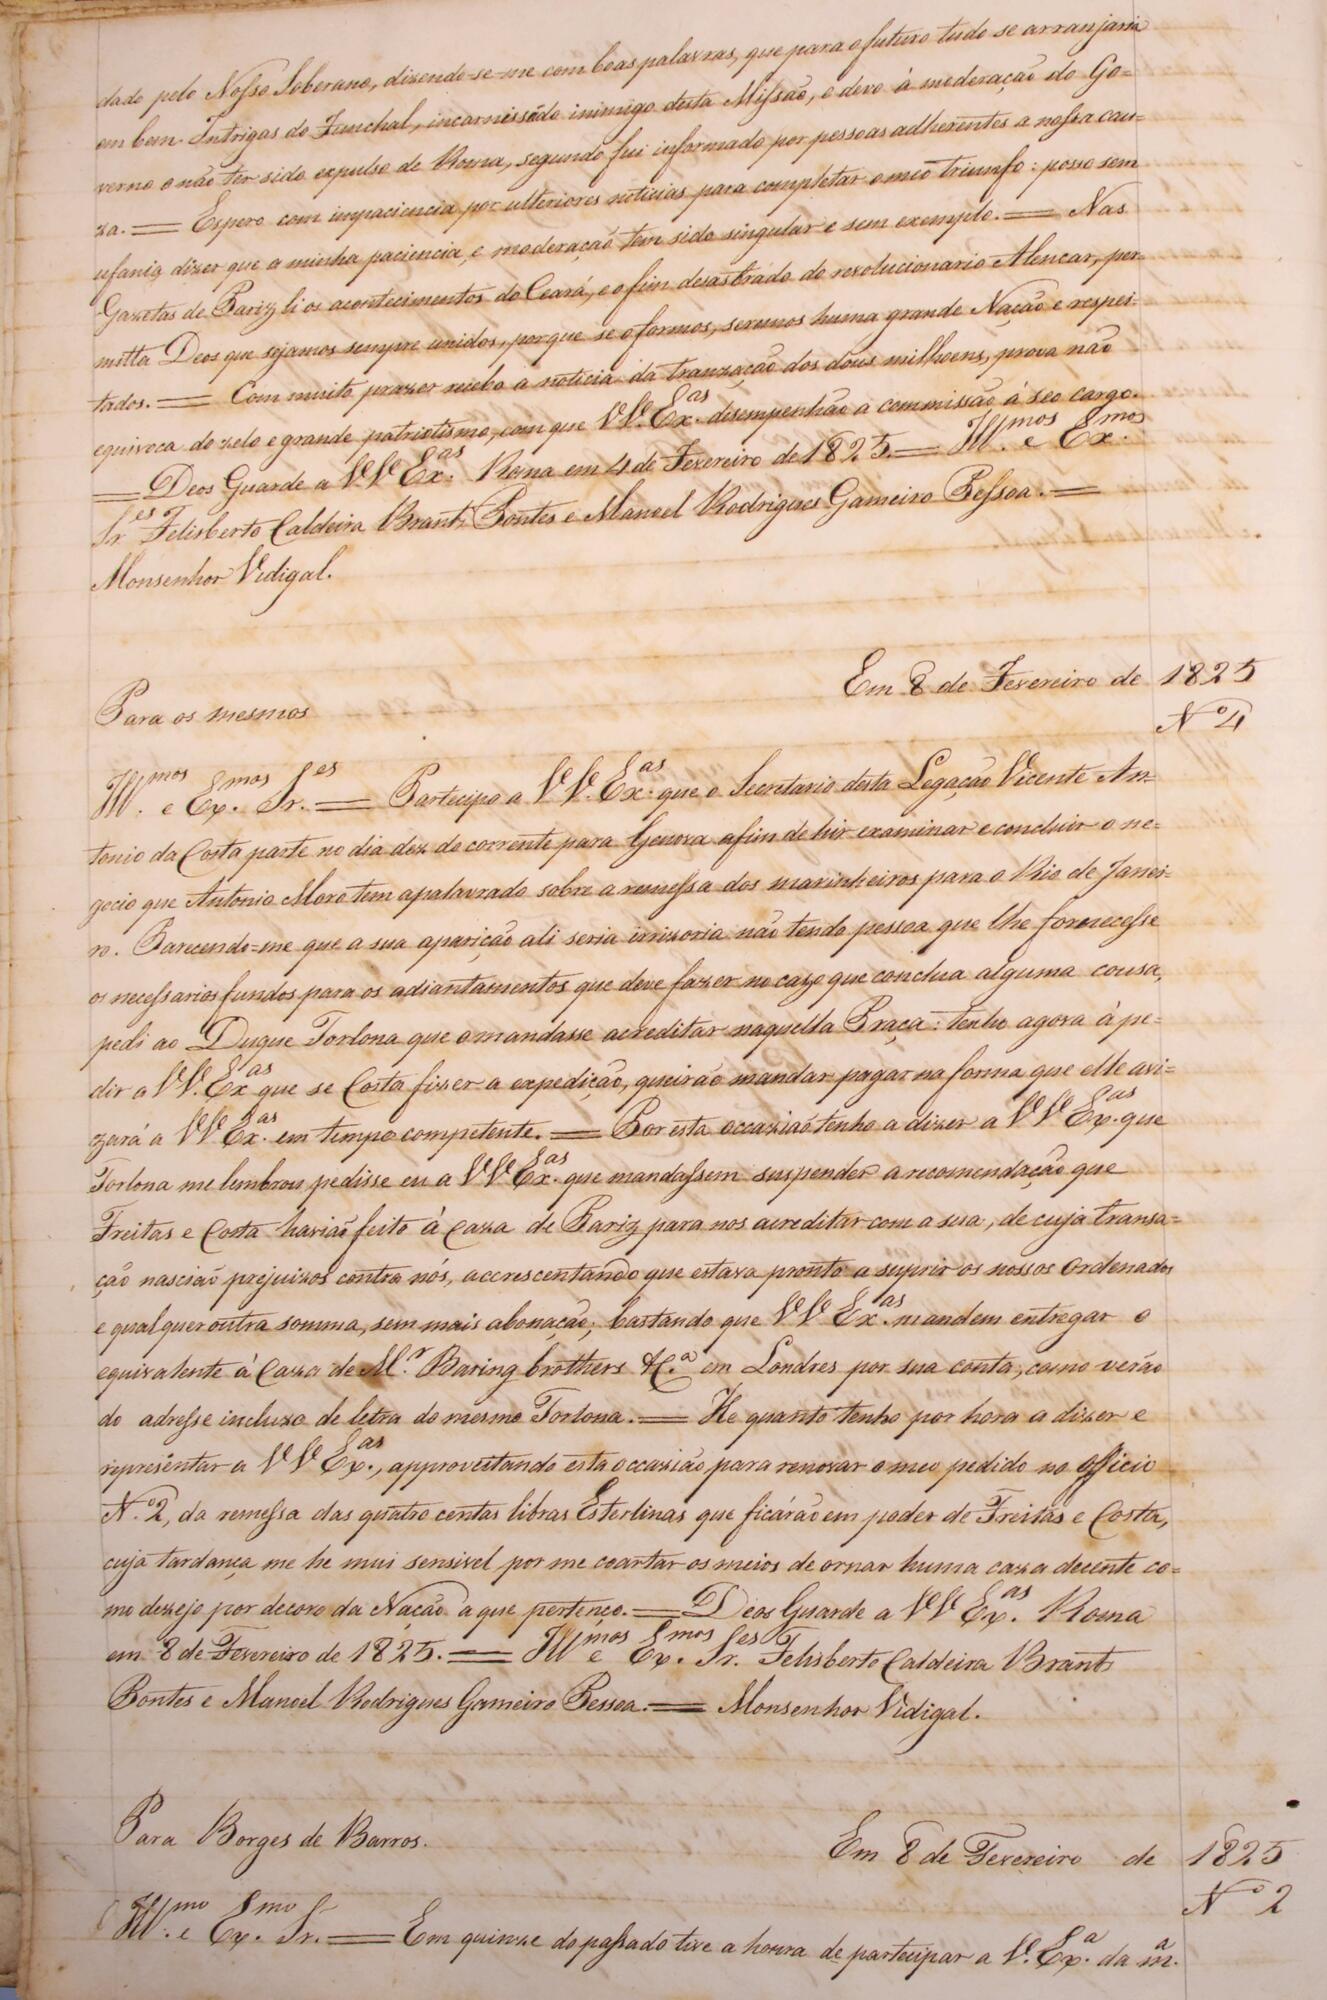 dado pelo Nosso Soberano, dizendo-se-me com boas palavras, que para o futuro tudo se arranjaria
em bem. Intrigas do Funchal, incarnissádo inimigo desta Missão, e devo à moderação do Go=
verno o não ter sido expulso de Roma, segundo fui informado por pessoas adherentes a nossa cau=
za. = Espero com impaciencia por ulteriores noticias para completar o meo triunfo: posso sem
ufania dizer que a minha paciencia, e moderação tem sido singular e sem exemplo. = Nas
Gazetas de Pariz li os acontecimentos do Ceará, e o fim desastrado do revolucionario Alencar, per=
mitta Deos que sejamos sempre unidos, porque se o formos, seremos huma grande Nação e respei=
tados. = Com muito prazer recebo a noticia da tranzação dos dous milhoens, prova não
equivoca do zelo e grande patriotismo, com que VV. Ex.as desempenhão a commissão à seo cargo.
= Deos Guarde a VV Ex.as Roma em 4 de Fevereiro de 1825. = Ill.mos e Ex.mos
Sr.es Felisberto Caldeira Brant, Pontes e Manoel Rodrigues Gameiro Pessoa. =
Monsenhor Vidigal.
Em 8 de Fevereiro de 1825
Para os mesmos
Nº 4
Ill.mos e Ex.mos Sr.es = Partecipo a VV. Ex.as que o Secretario desta Legação Vicente An=
tonio da Costa parte no dia dez do corrente para Genova afim de hir examinar e concluir o ne=
gocio que Antonio Moro tem apalavrado sobre a remessa dos marinheiros para o Rio de Janei=
ro. Parecendo=me que a sua aparição ali seria irrizoria não tendo pessoa que lhe fornecesse
os necessarios fundos para os adiantamentos que deve fazer no cazo que conclua alguma cousa,
pedi ao Duque Torlona que o mandasse acreditar naquella Praça: tenho agora à pe=
dir a VV. Ex.as que se Costa fizer a expedição, queirão mandar pagar na forma que elle avi=
zará a VV Ex.as em tempo competente. = Por esta occazião tenho a dizer a VV Ex.as que
Torlona me lembrou pedisse eu a VV Ex.as que mandassem suspender a recomendação que
Freitas e Costa havião feito à Caza de Pariz para nos acreditar com a sua, de cuja transa=
ção nascião prejuizos contra nós, accrescentando que estava pronto a suprir os nossos Ordenados
e qualquer outra somma, sem mais abonação; bastando que VV Ex.as mandem entregar o
equivalente à Caza de M.r Baring brothers &C.a em Londres por sua conta, como verão
do adresse incluzo de letra do mesmo Torlona. = He quanto tenho por hora a dizer e
representar a VV Ex.as, approveitando esta occazião para renovar o meo pedido no officio
N.º 2, da remessa das quatro centas libras Esterlinas que ficárão em poder de Freitas e Costa,
cuja tardança me he mui sensivel por me coartar os meios de ornar huma caza decente co=
mo dezejo por decoro da Nação a que pertenço. = Deos Guarde a VV Ex.as Roma
em 8 de Fevereiro de 1825. = Ill.mos e Ex.mos Sr.es Felisberto Caldeira Brant
Pontes e Manoel Rodrigues Gameiro Pessoa. = Monsenhor Vidigal.
Para Borges de Barros.
Em 8 de Fevereiro de 1825
Nº 2
Ill.mo e Ex.mo Sr. = Em quinze do passado tive a honra de partecipar a V. Ex.a da m.a